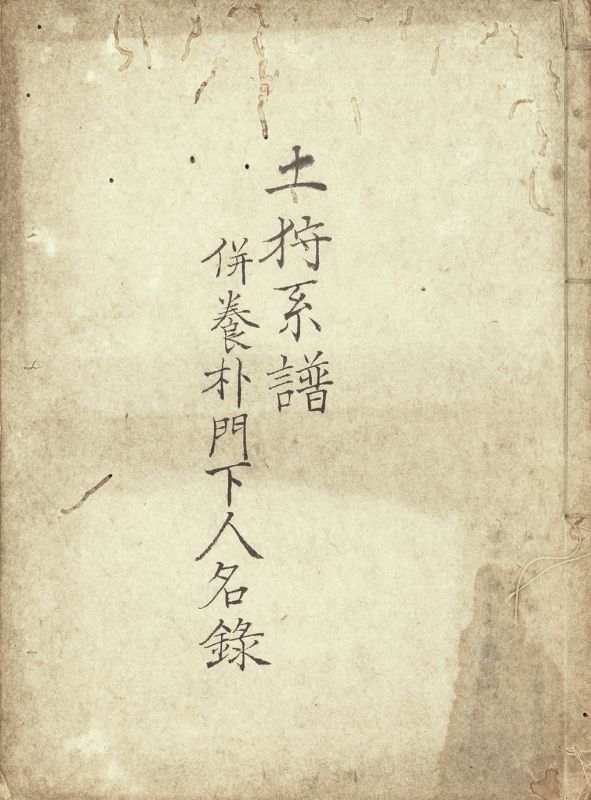 土狩系譜
併養朴門下人名錄